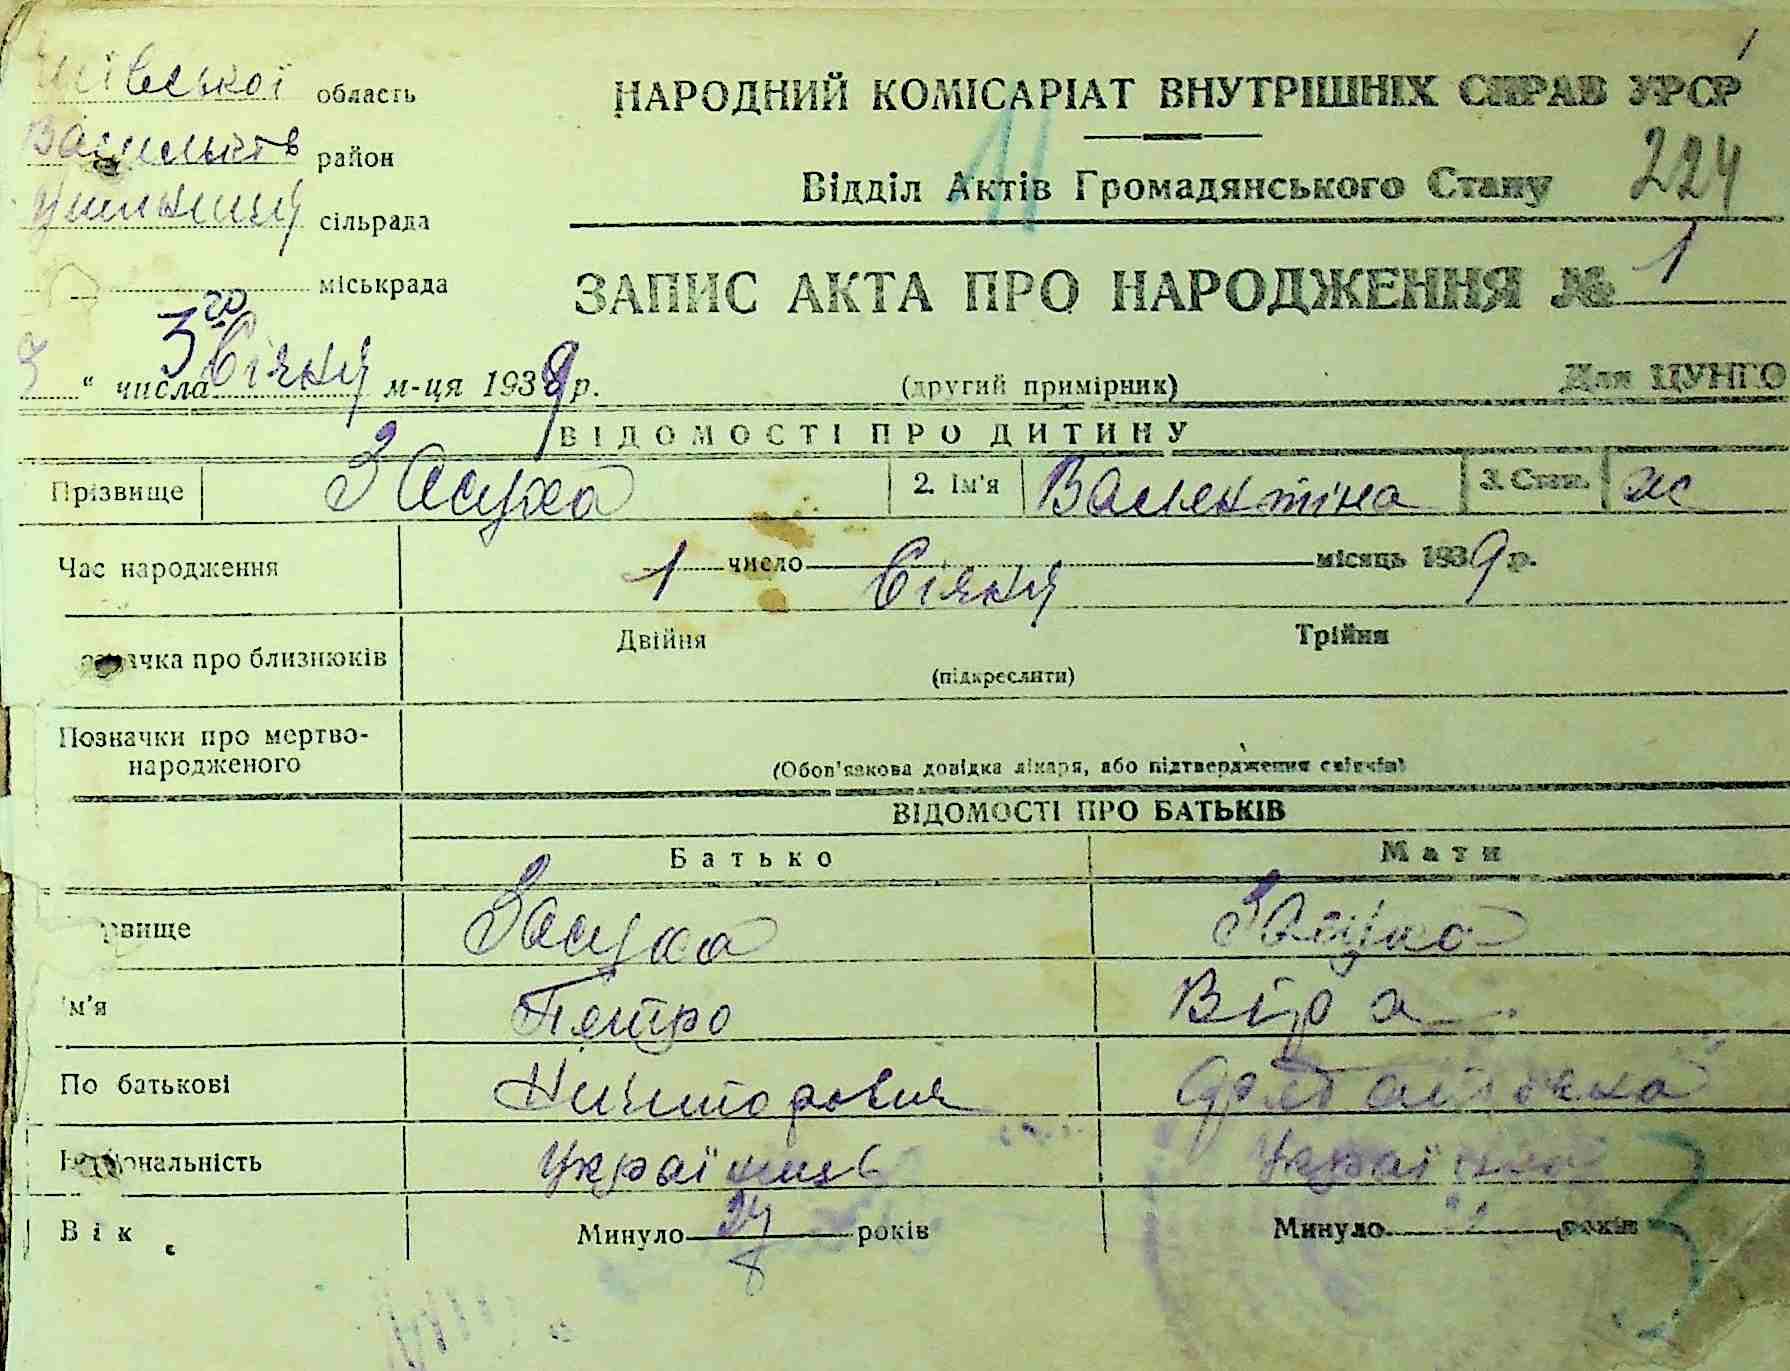 область
НАРОДНИЙ КОМІСАРІАТ ВНУТРІШНІХ СПРАВ УРСР
район
Відділ Актів Громадянського Стану 224
сільрада
міськрада
ЗАПИС АКТА ПРО НАРОДЖЕННЯ № 1
3го
3 " числа Січня м-ця 1939 р. (другий примірник) Для ЦУНГО
ВІДОМОСТІ ПРО ДИТИНУ
Прізвище Засуха 2. Ім'я Валентіна 3. Стать ж
Час народження 1 число Січня місяць 1939 р.
значка про близнюків Двійня Трійня
(підкреслити)
Позначки про мертво-
народженого
(Обов'язкова довідка лікаря, або підтвердження свідків)
ВІДОМОСТІ ПРО БАТЬКІВ
Батько Мати
рвище Засуха Засуха
ім'я Петро Віра
По батькові
Національність Українець Українка
Вік Минуло років Минуло років